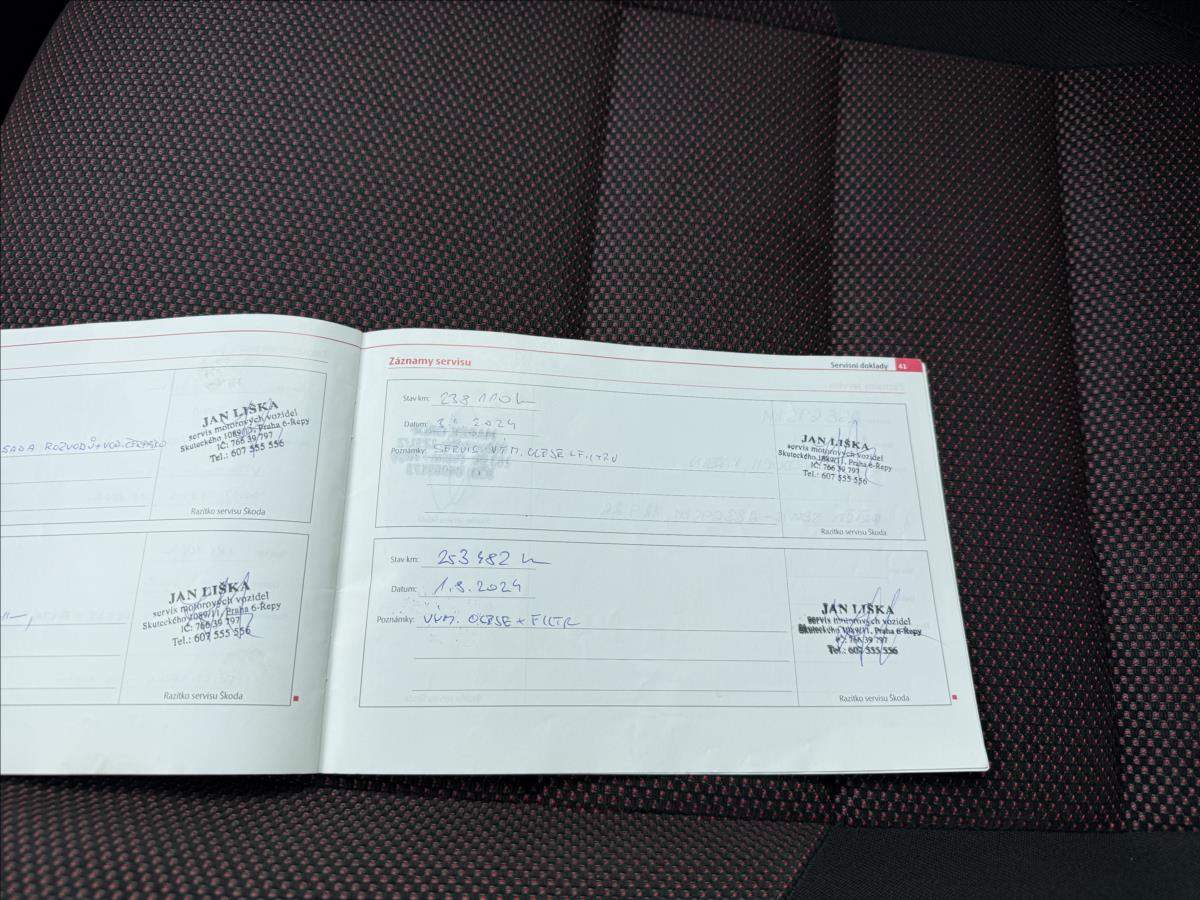 SADA ROZVODŮ + VOD. ČERPADLO
JAN LIŠKA
servis motorových vozidel
Skuteckého 1089/11, Praha 6-Řepy
IČ: 766 39 797
Tel.: 607 555 556
Razítko servisu Škoda
JAN LIŠKA
servis motorových vozidel
Skuteckého 1089/11, Praha 6-Řepy
IČ: 766 39 797
Tel.: 607 555 556
Razítko servisu Škoda
Záznamy servisu
Servisní doklady 41
Stav km: 238 110 km
Datum: 2024
Poznámky: SERVIS VÝM. OLEJE + FILTRU
JAN LIŠKA
servis motorových vozidel
Skuteckého 1089/11, Praha 6-Řepy
IČ: 766 39 797
Tel.: 607 555 556
Razítko servisu Škoda
Stav km: 253 482 km
Datum: 1.8.2024
Poznámky: VÝM. OLEJE + FILTR
JAN LIŠKA
servis motorových vozidel
Skuteckého 1089/11, Praha 6-Řepy
IČ: 766 39 797
Tel.: 607 555 556
Razítko servisu Škoda